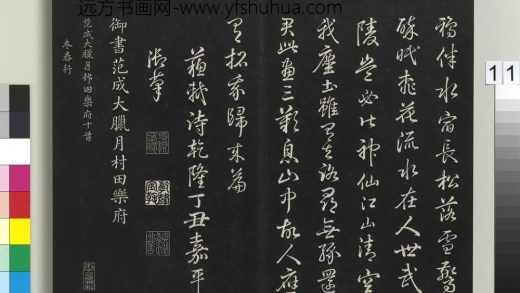 远方书画网- www.yfshuhua.com
鴉伴水宿長松落雪驚
醉眠桃花流水在人世武
陵豈必皆神仙江山清空
我塵土雖有去路尋無緣還
君此畫三歎息山中故人應
有招我歸來篇
蘇軾詩乾隆丁丑嘉平
御筆
御書范成大臘月村田樂府
范成大臘月村田樂府十首
冬舂行
11